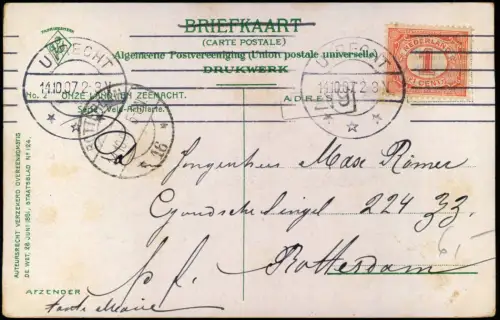 BRIEFKAART
(CARTE POSTALE)
Algemeene Postvereeniging (Union postale universelle)
DRUKWERK
NEDERLAND
1
CENT
UTRECHT
11.10.07.2-3.N
UTRECHT
11.10.07.2-3.N
No. 2 ONZE LAND- EN ZEEMACHT.
Serie Veld-Artillerie.
ADRES
ROTTERDAM
16
Jongenheer Max Römer
Goudsche Singel 224 zz.
Rotterdam
p. f.
AFZENDER
Tante Marie
AUTEURSRECHT VERZEKERD OVEREENKOMSTIG
DE WET, 28 JUNI 1881, STAATSBLAD No 124.